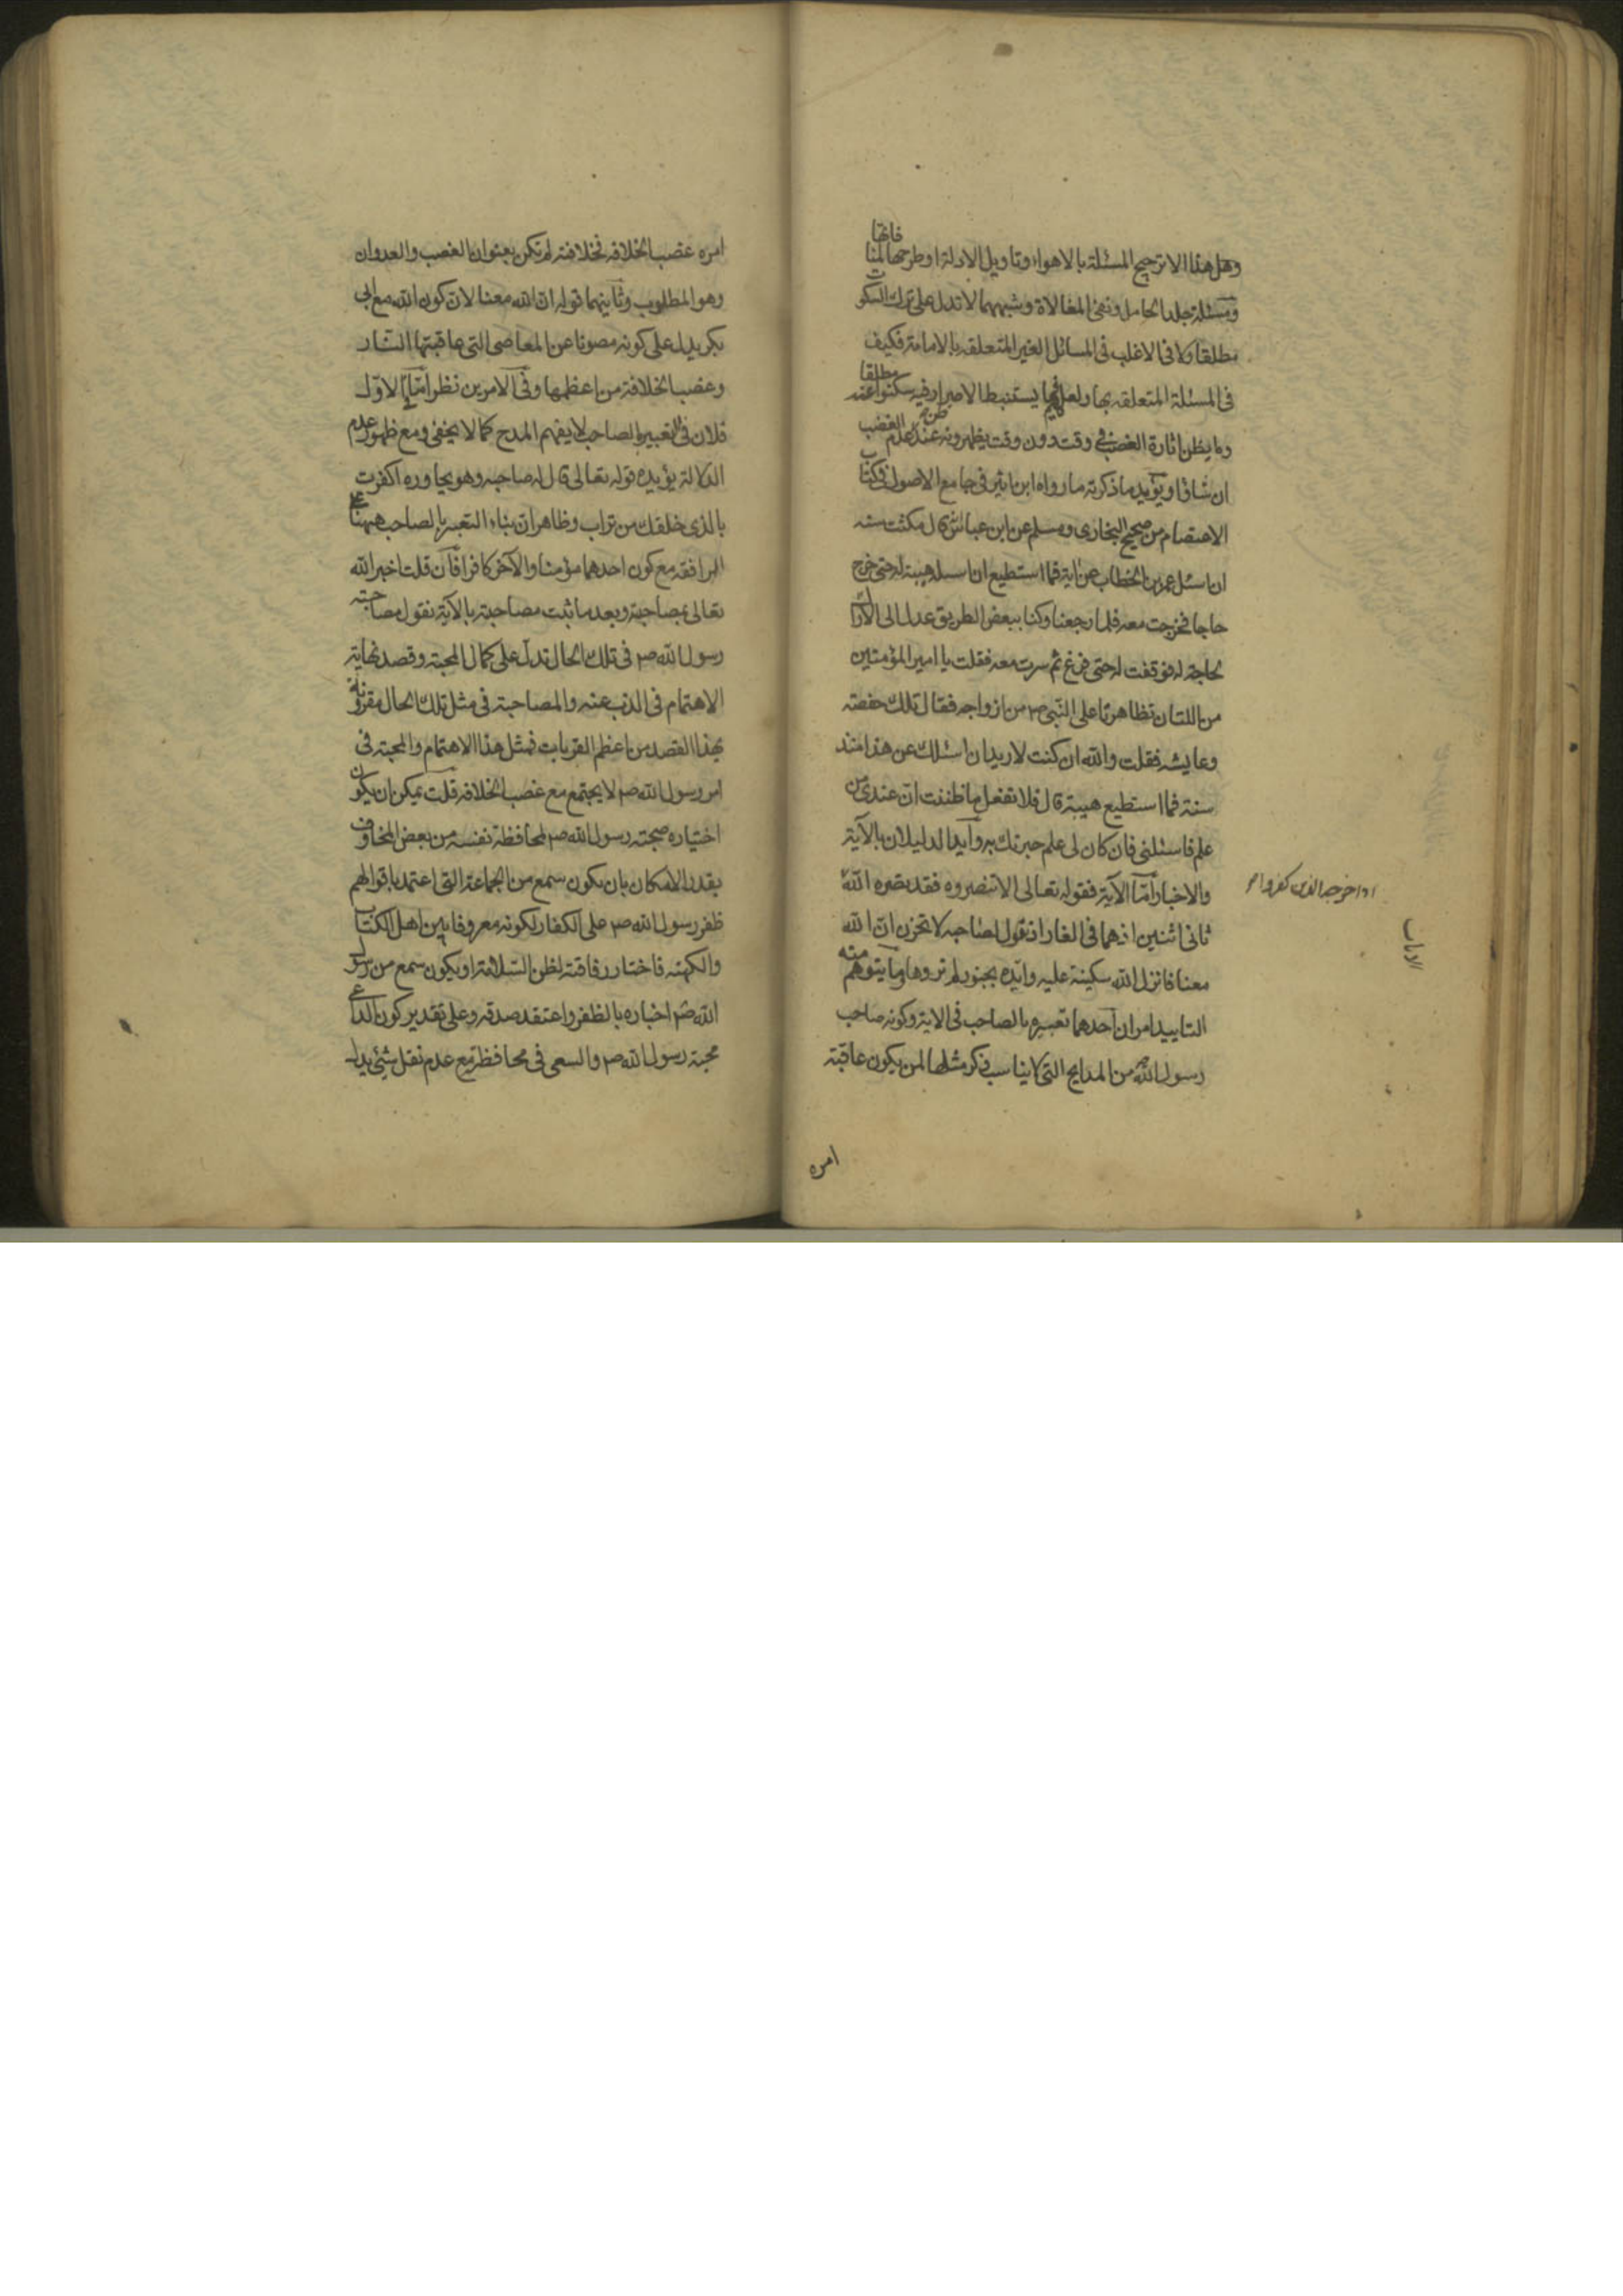 وهل هذا الا ترجيح المسئلة بالاهواء وتاويل الادلة او طرحها لمنافاتها
ومسئلة جلد الحامل ونهى المغالاة وشبههما لا تدل على ترك السكوت
مطلقا ولا فى الاغلب فى المسائل الغير المتعلقه بالامامة فكيف
فى المسئلة المتعلقه بها ولعلهم يستنبط الاصرار فيه سكتوا عنه مطلقا
وما يظن اثارة الغضب فى وقت دون وقت يظهرونه عند ظن عدم الغضب
ان شاؤا ويؤيد ما ذكرته ما رواه ابن اثير فى جامع الاصول فى كتاب
الاعتصام من صحيح البخارى ومسلم عن ابن عباس قال مكثت سنه
ان اسئل عمر بن الخطاب عن اية فما استطيع ان اسئله هيبة له حتى خرج
حاجا فخرجت معه فلما رجعنا وكنا ببعض الطريق عدل الى الاراك
لحاجة له فوقفت له حتى فرغ ثم سرت معه فقلت يا امير المؤمنين
من اللتان تظاهرتا على النبى ص من ازواجه فقال تلك حفصه
وعايشه فقلت والله ان كنت لاريد ان اسئلك عن هذا منذ
سنة فما استطيع هيبة قال فلا تفعل ما ظننت ان عندى من
علم فاسئلنى فان كان لى علم خبرتك به وايد الدليلان بالآية
والاخبار امّا الآية فقوله تعالى الا تنصروه فقد نصره الله
اذ اخرجه الذين كفروا
ثانى اثنين اذ هما فى الغار اذ يقول لصاحبه لا تحزن ان الله
معنا فانزل الله سكينة عليه وايده بجنود لم تروها وما يتوهم منه
التاييد امران احدهما تعبيره بالصاحب فى الاية وكونه صاحب
رسول الله من المدايح التى لا يناسب ذكر مثلها لمن يكون عاقبة
امره
امره غصب الخلافه فخلافته لم تكن بعنوان الغصب والعدوان
وهو المطلوب وثانيهما قوله ان الله معنا لان كون الله مع ابى
بكر يدل على كونه مصونا عن المعاصى التى عاقبتها النار
وغصب الخلافة من اعظمها وفى الامرين نظر امّا الاوّل
فلان فى التعبير بالصاحب لا يفهم المدح كما لا يخفى ومع ظهور عدم
الدلالة يؤيده قوله تعالى قال له صاحبه وهو يحاوره اكفرت
بالذى خلقك من تراب وظاهر ان بناء التعبير بالصاحب ههنا على
المرافقه مع كون احدهما مؤمنا والآخر كافرا فان قلت اخبر الله
تعالى بمصاحبته وبعد ما ثبت مصاحبته بالآية نقول مصاحبته
رسول الله ص فى تلك الحال تدل على كمال المحبة وقصد نهاية
الاهتمام فى الذب عنه والمصاحبة فى مثل تلك الحال مقرونة
بهذا القصد من اعظم القربات فمثل هذا الاهتمام والمحبة فى
امر رسول الله ص لا يجتمع مع غصب الخلافه قلت يمكن ان يكون
اختياره صحبته رسول الله ص لمحافظة نفسه من بعض المخاوف
بقدر الامكان بان يكون سمع من الجماعة التى اعتمد باقوالهم
ظفر رسول الله ص على الكفار لكونه معروفا بين اهل الكتاب
والكهنه فاختار رفاقته لظن السلامة او يكون سمع من رسول
الله ص اخباره بالظفر واعتقد صدقه وعلى تقدير كون الداعى
محبة رسول الله ص والسعى فى محافظته مع عدم نقل شئ يدل